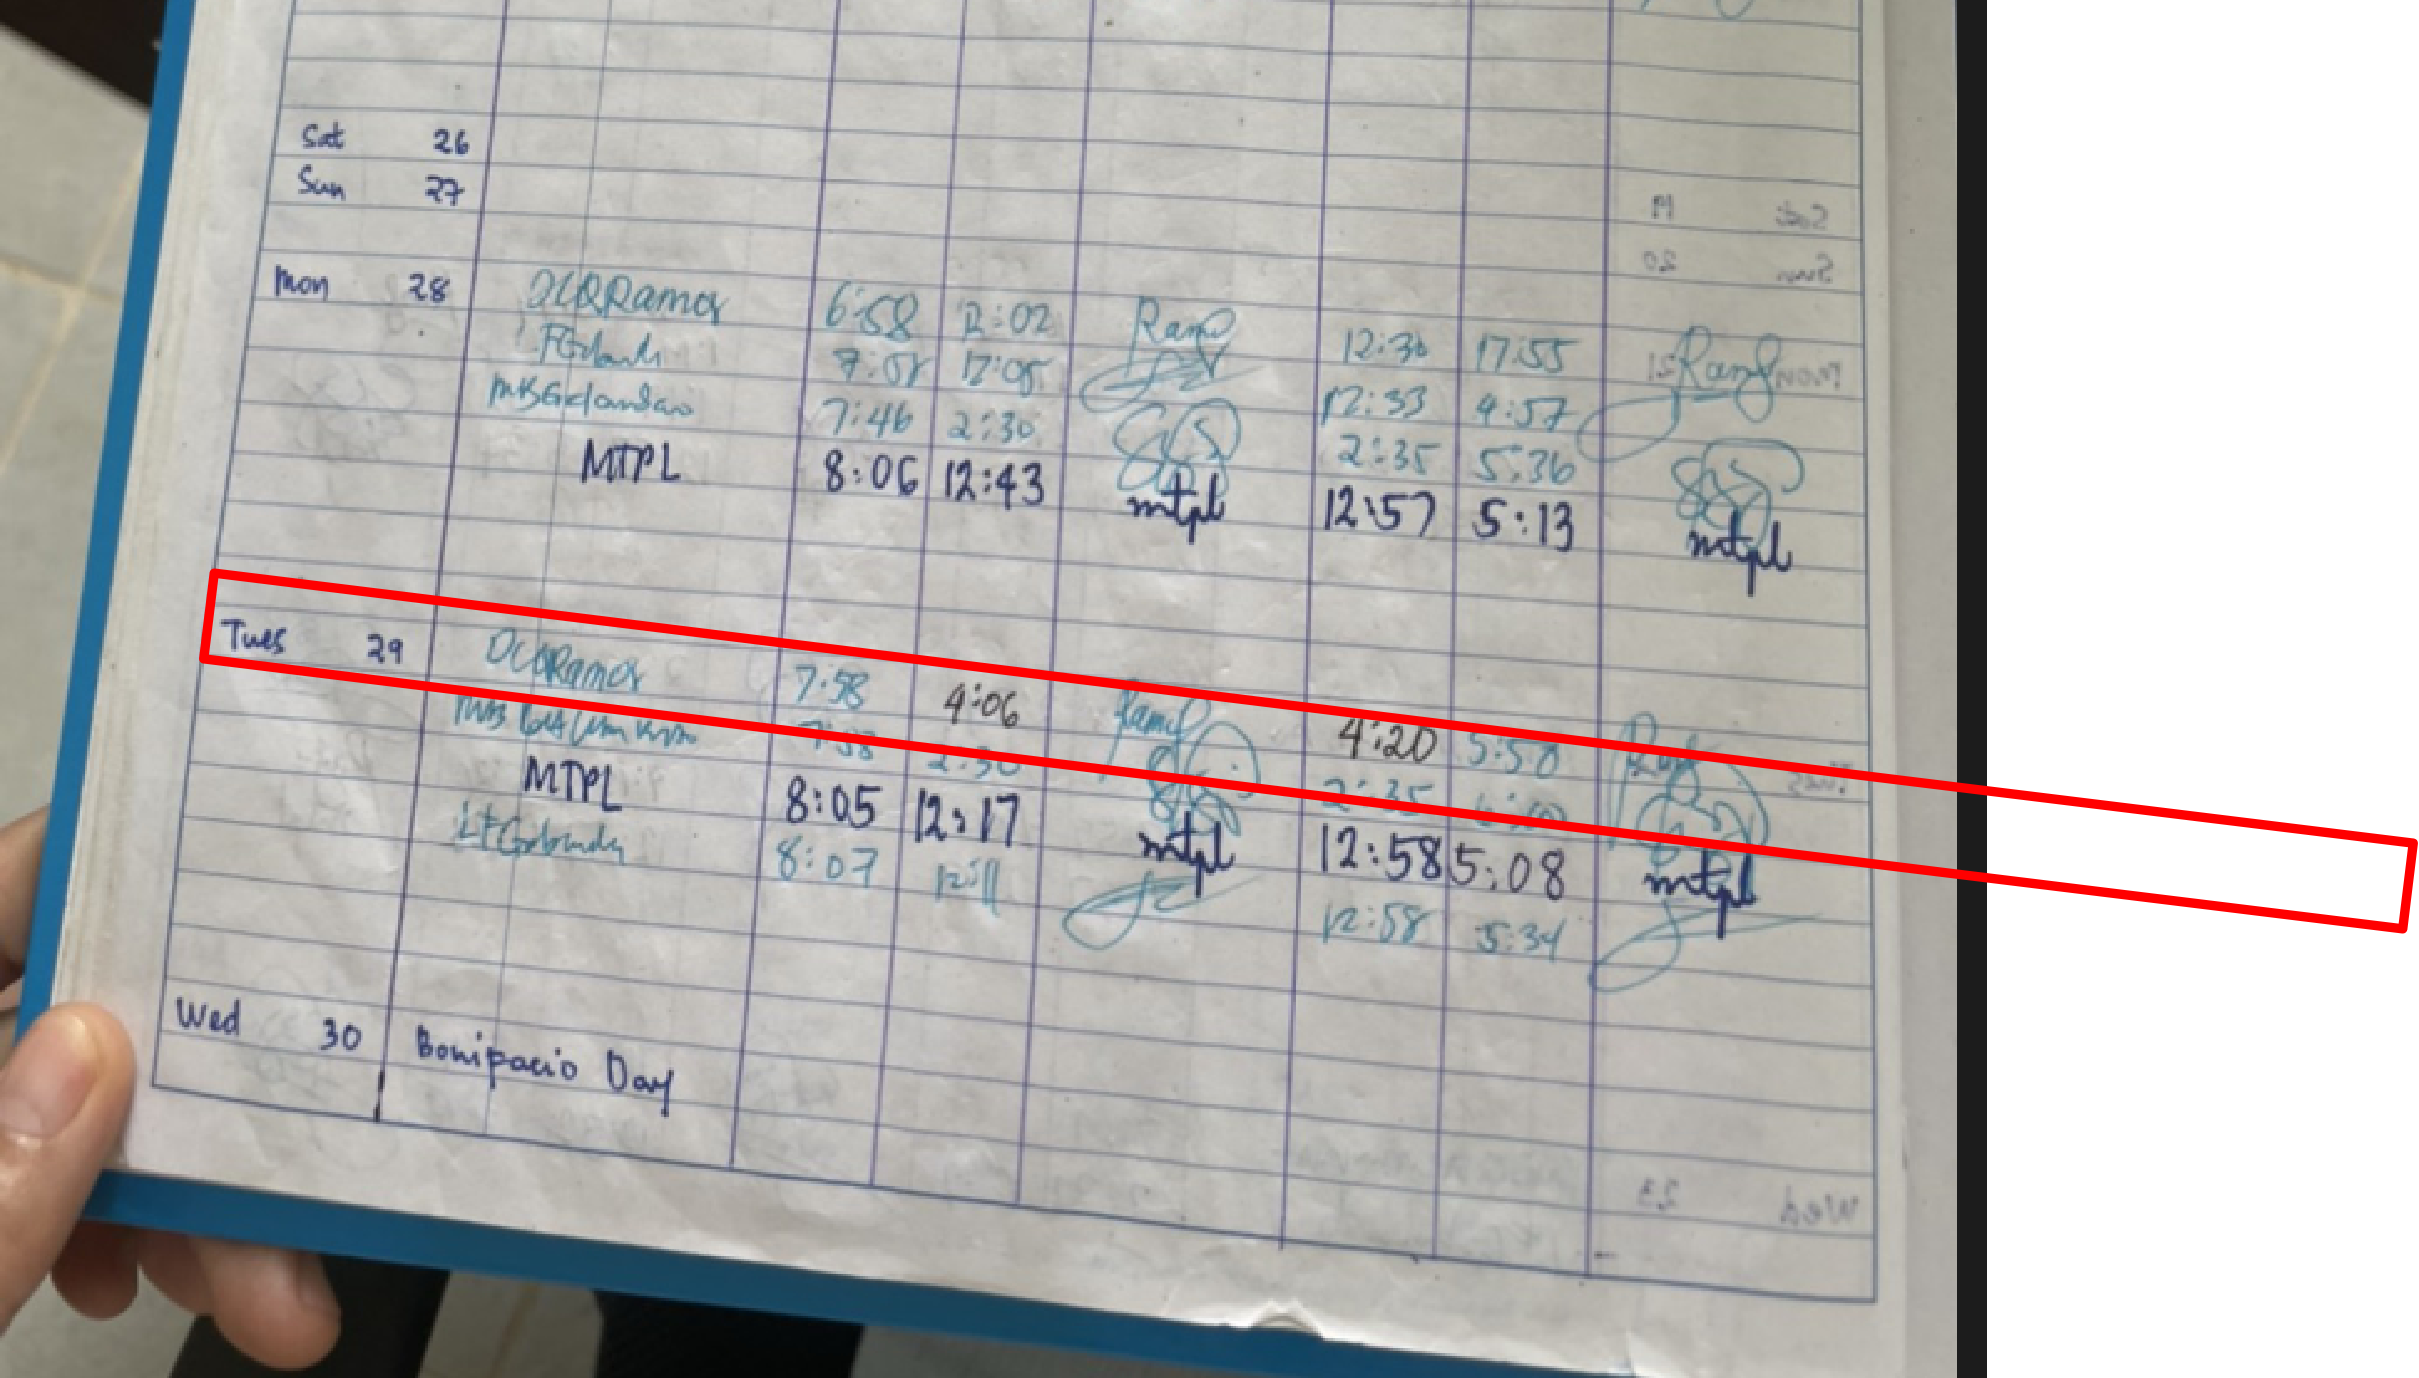 Sat 26
Sun 27
Mon 28 DCQRamos 6:58 12:02 12:30 17:55
7:01 12:05 12:33 4:57
7:46 2:30 2:35 5:36
MTPL 8:06 12:43 mtpl 12:57 5:13 mtpl
Tues 29 DCQRamos 7:58 4:06 4:20 5:50
7:58 2:30 2:35
MTPL 8:05 12:17 mtpl 12:58 5:08 mtpl
8:07 12:11 12:58 5:34
Wed 30 Bonipacio Day